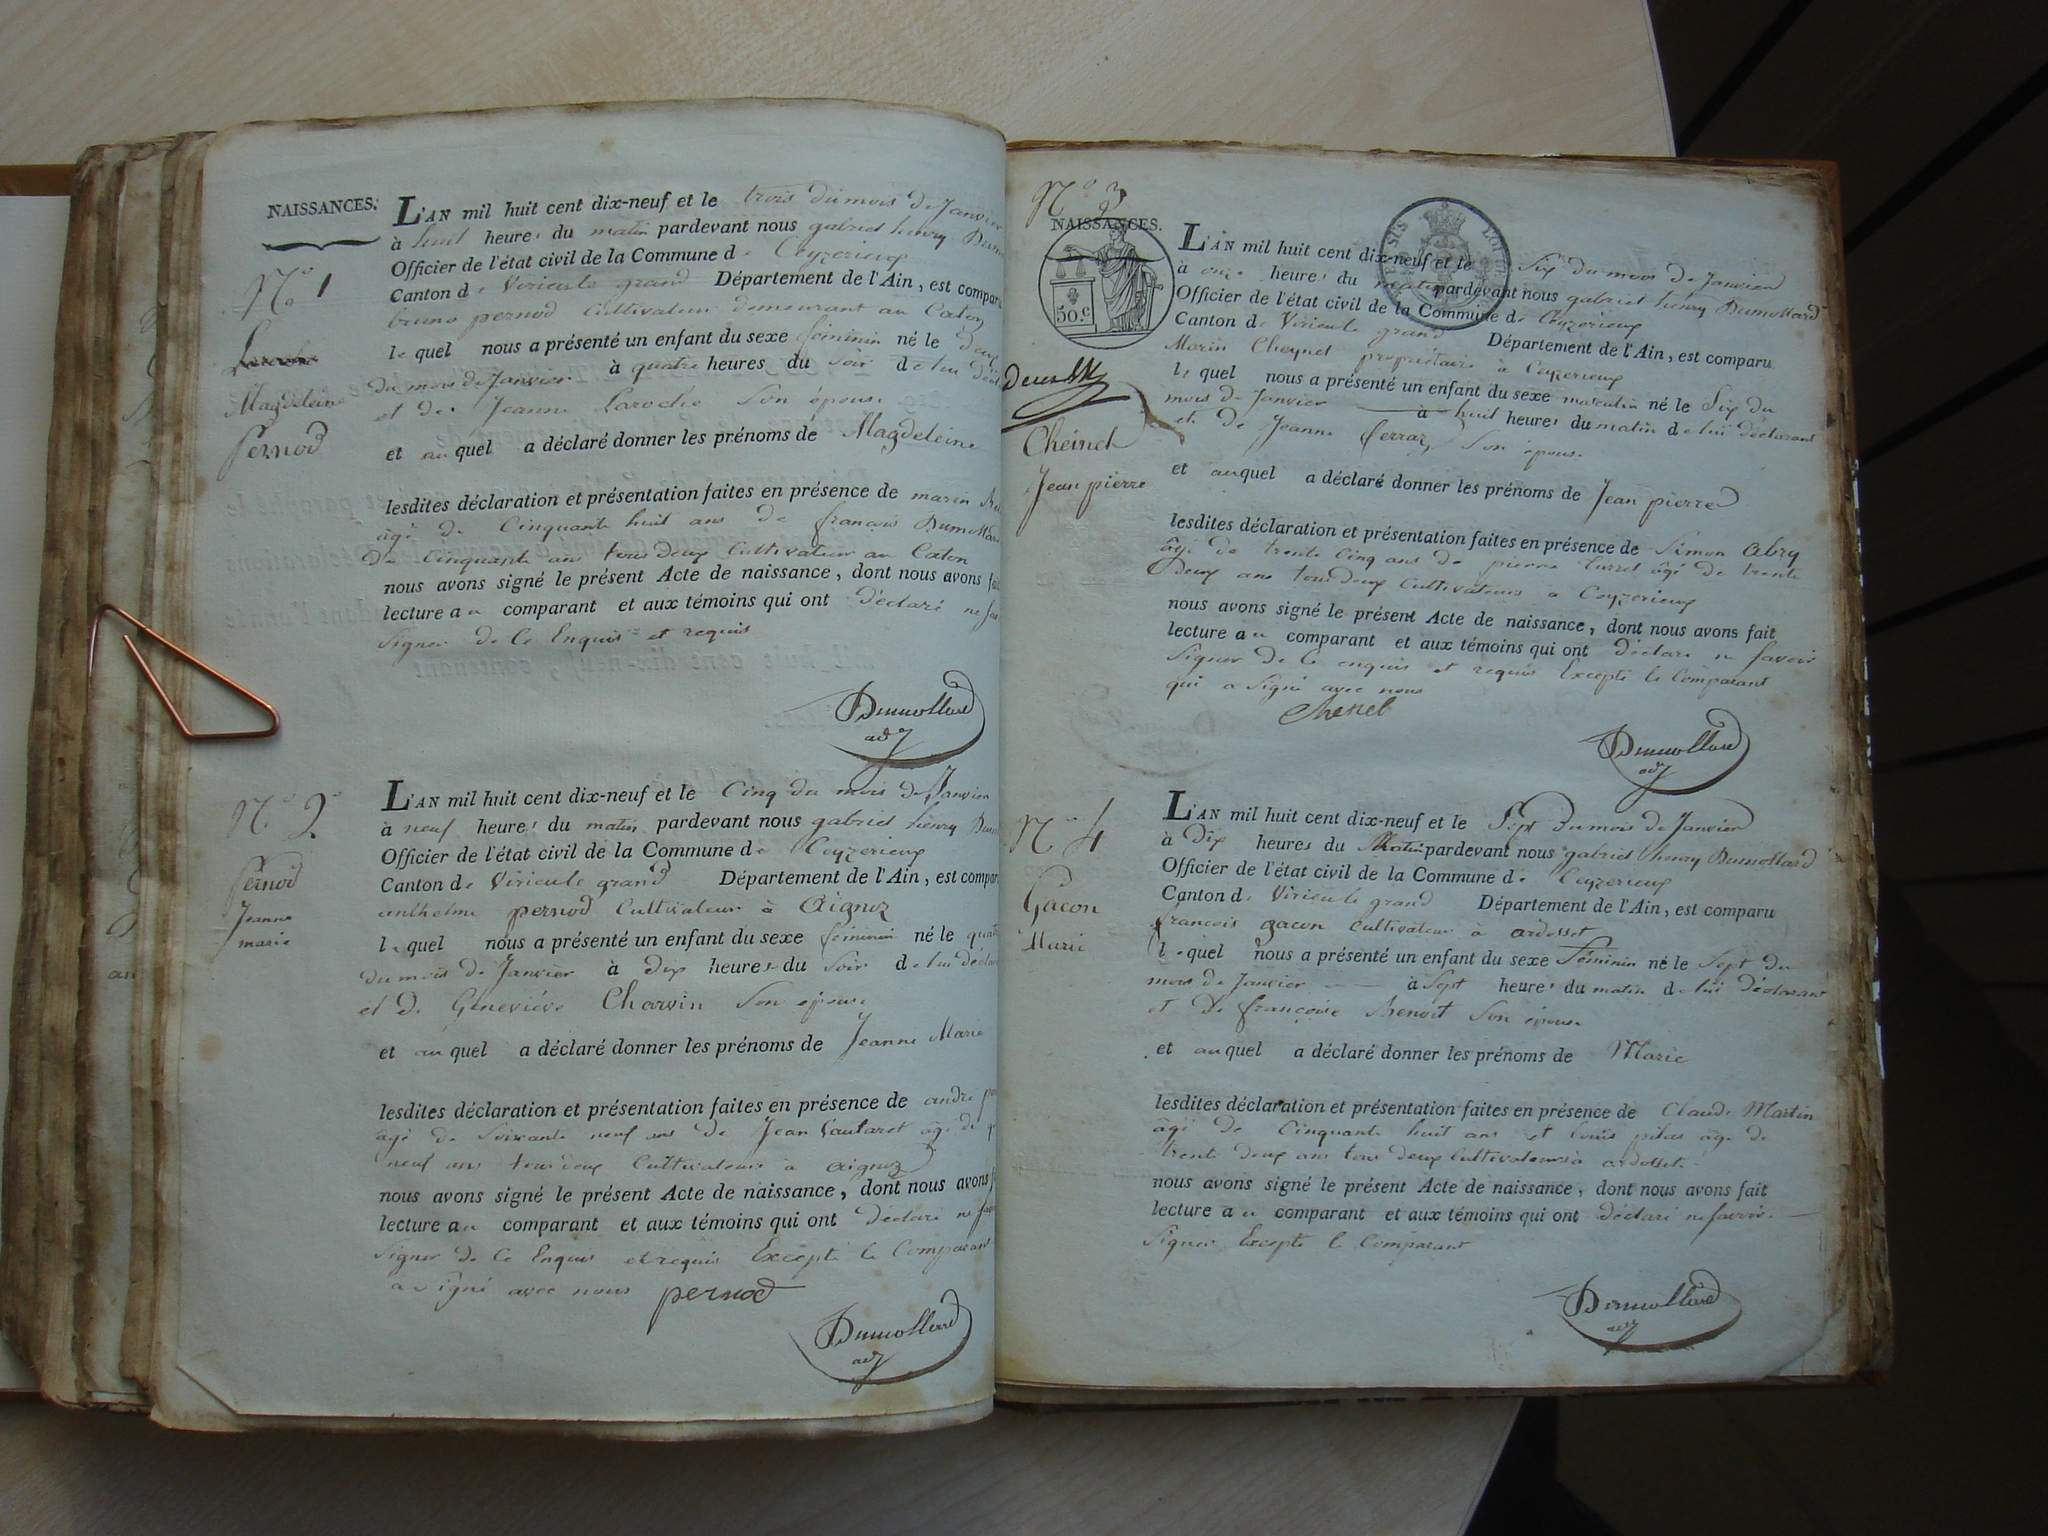 NAISSANCES.
L'AN mil huit cent dix-neuf et le trois du mois de Janvier
à huit heures du matin pardevant nous gabriel henry
Officier de l'état civil de la Commune de Ceyzerieux
Canton de Virieu le grand Département de l'Ain, est
bruno pernod Cultivateur demeurant au Caton
lequel nous a présenté un enfant du sexe féminin né le deux
du mois de Janvier à quatre heures du soir de lui
et de Jeanne Laroche Son épouse
et auquel a déclaré donner les prénoms de Magdeleine
lesdites déclaration et présentation faites en présence de marin
âgé de Cinquante huit ans de françois Dumollard
de Cinquante ans tous deux Cultivateur au Caton
nous avons signé le présent Acte de naissance, dont nous avons
lecture au comparant et aux témoins qui ont déclaré ne
Signer de Ce Enquis et requis
Dumollard
adj
N° 1
Laroche
Magdeleine
Pernod
L'AN mil huit cent dix-neuf et le Cinq du mois de Janvier
à neuf heures du matin pardevant nous gabriel henry
Officier de l'état civil de la Commune de Ceyzerieux
Canton de Virieu le grand Département de l'Ain, est
anthelme pernod Cultivateur à Aignoz
lequel nous a présenté un enfant du sexe féminin né le
du mois de Janvier à dix heures du Soir de lui
et de Geneviéve Charvin Son épouse
et auquel a déclaré donner les prénoms de Jeanne Marie
lesdites déclaration et présentation faites en présence de andré
âgé de Soixante neuf ans de Jean Lautaret âgé de
neuf ans tous deux Cultivateurs à aignoz
nous avons signé le présent Acte de naissance, dont nous avons
lecture au comparant et aux témoins qui ont déclaré ne
Signer de Ce Enquis et requis Excepté le Comparant
a Signé avec nous pernod
Dumollard
adj
N° 2
Pernod
Jeanne
marie
N° 3
NAISSANCES.
50.c
L'AN mil huit cent dix-neuf et le Six du mois de Janvier
à onze heures du matin pardevant nous gabriel henry Dumollard
Officier de l'état civil de la Commune de Ceyzerieux
Canton de Virieu le grand Département de l'Ain, est comparu
Marin Cheynel propriétaire à Ceyzerieux
lequel nous a présenté un enfant du sexe masculin né le Six du
mois de Janvier à huit heures du matin de lui déclarant
et de Jeanne ferraz Son épouse
et auquel a déclaré donner les prénoms de Jean pierre
lesdites déclaration et présentation faites en présence de Simon Abry
âgé de trente Cinq ans de pierre turrel âgé de trente
deux ans tous deux Cultivateurs a Ceyzerieux
nous avons signé le présent Acte de naissance, dont nous avons fait
lecture au comparant et aux témoins qui ont déclaré ne savoir
Signer de Ce enquis et requis Excepté le Comparant
qui a Signé avec nous
Chenel
Dumollard
adj
Cheinel
Jean pierre
L'AN mil huit cent dix-neuf et le Sept du mois de Janvier
à Dix heures du Matin pardevant nous gabriel henry Dumollard
Officier de l'état civil de la Commune de Ceyzerieux
Canton de Virieu le grand Département de l'Ain, est comparu
françois gacon Cultivateur à ardosset
lequel nous a présenté un enfant du sexe Féminin né le Sept du
mois de Janvier à Sept heures du matin de lui déclarant
et de françoise Benoit Son épouse
et auquel a déclaré donner les prénoms de Marie
lesdites déclaration et présentation faites en présence de Claude Martin
âgé de Cinquante huit ans et Louis pilas âgé de
trente deux ans tous deux Cultivateurs à ardosset
nous avons signé le présent Acte de naissance, dont nous avons fait
lecture au comparant et aux témoins qui ont déclaré ne savoir
Signer Excepté le Comparant
Dumollard
adj
N° 4
Gacon
Marie